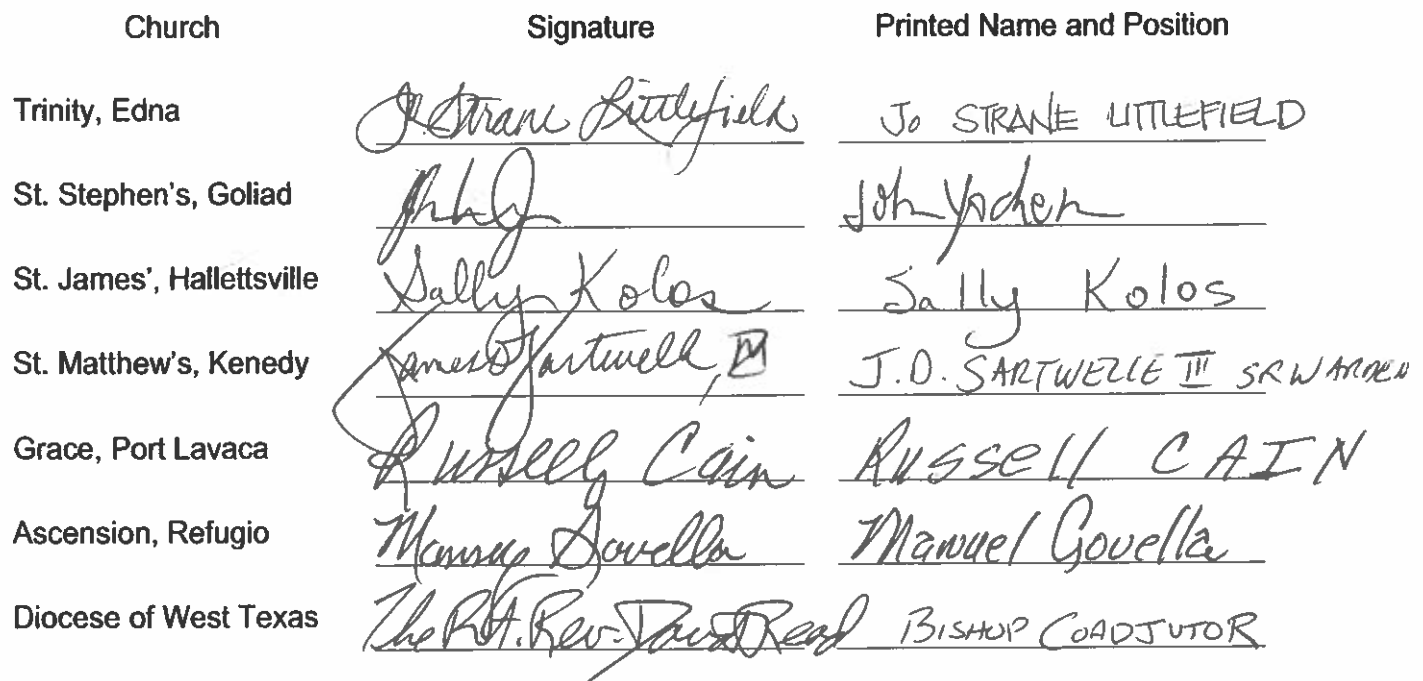 Church Signature Printed Name and Position
Trinity, Edna Jo Strane Littlefield Jo STRANE LITTLEFIELD
St. Stephen's, Goliad John Yochem
St. James', Hallettsville Sally Kolos Sally Kolos
St. Matthew's, Kenedy James D Sartwelle, III J.D. SARTWELLE III SR WARDEN
Grace, Port Lavaca Russell Cain RUSSell CAIN
Ascension, Refugio Manuel Govella Manuel Govella
Diocese of West Texas The Rt. Rev. David Read BISHOP COADJUTOR